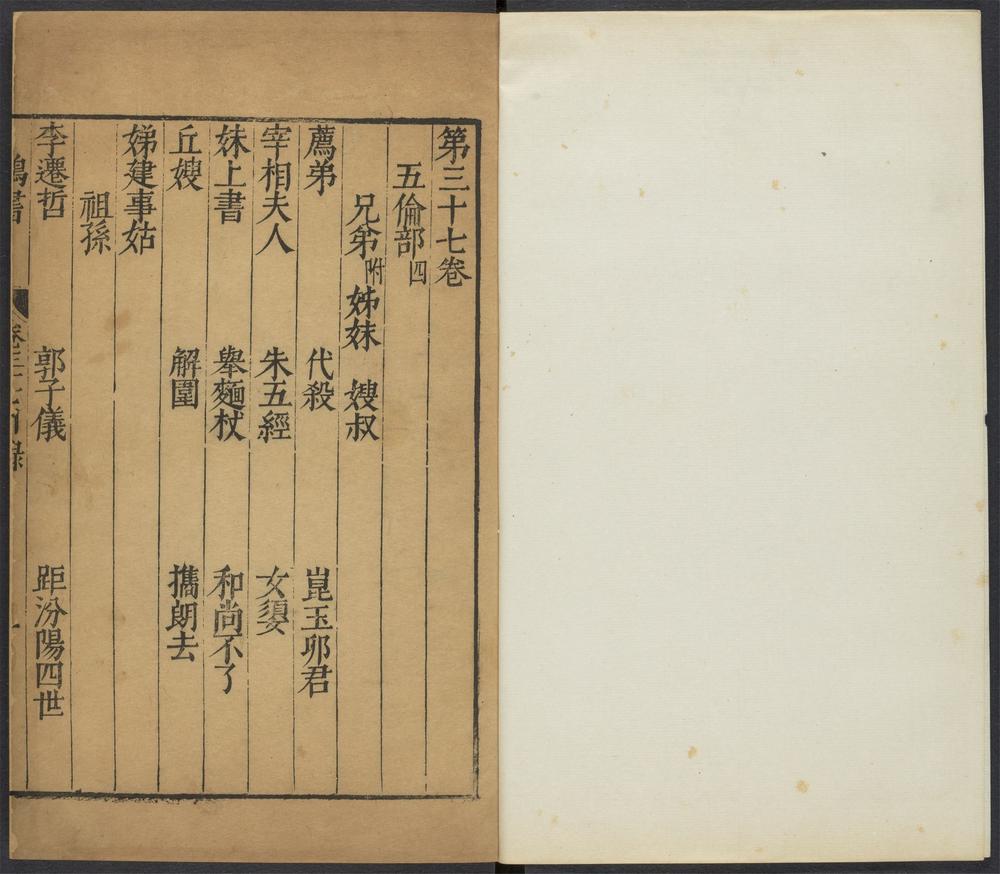 第三十七卷
五倫部四
兄弟附姊妹 嫂叔
薦弟 代殺 崑玉卯君
宰相夫人 朱五經 女嬃
妹上書 舉麵杖 和尚不了
丘嫂 解圍 攜朗去
娣建事姑
祖孫
李遷哲 郭子儀 距汾陽四世